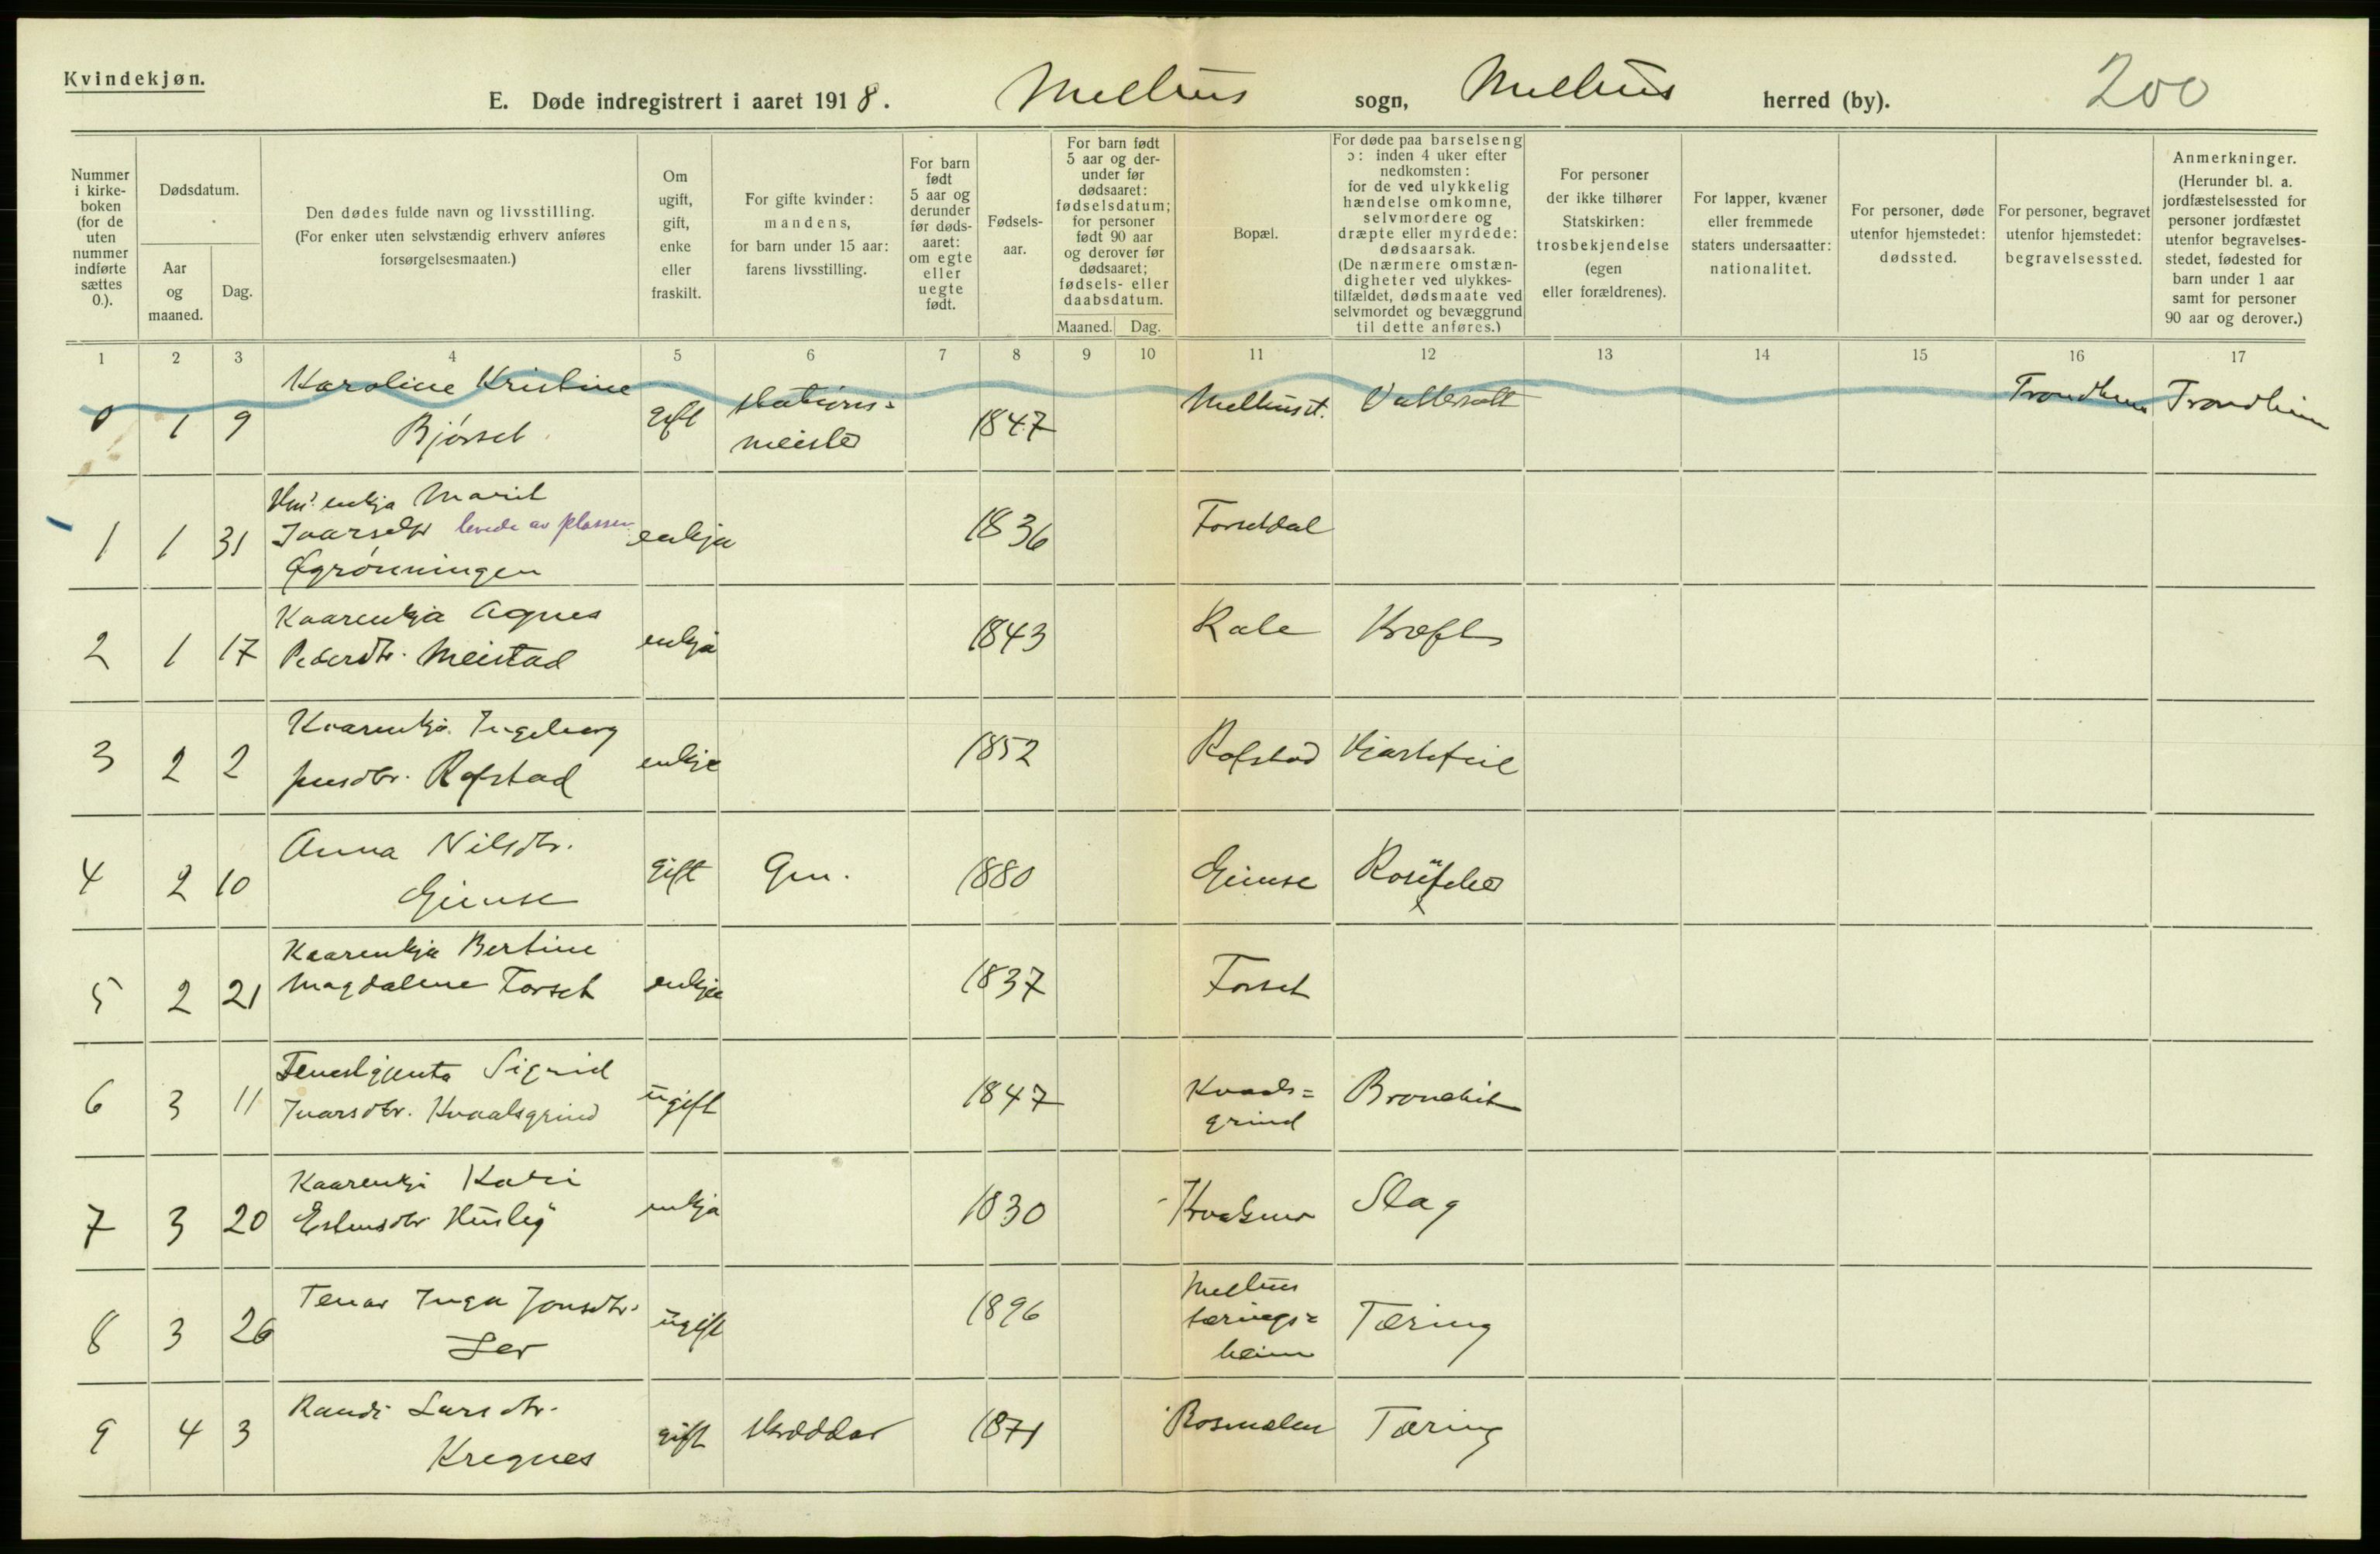 Kvindekjøn.
E. Døde indregistrert i aaret 1918. Melhus sogn, Melhus herred (by). 200
Nummer i kirke-boken (for de uten nummer indførte sættes 0.).
Dødsdatum.
Aar og maaned.
Dag.
Den dødes fulde navn og livsstilling.
(For enker uten selvstændig erhverv anføres forsørgelsesmaaten.)
Om ugift, gift, enke eller fraskilt.
For gifte kvinder: mandens, for barn under 15 aar: farens livsstilling.
For barn født 5 aar og derunder før døds-aaret: om egte eller uegte født.
Fødsels-aar.
For barn født 5 aar og der-under før dødsaaret: fødselsdatum; for personer født 90 aar og derover før dødsaaret; fødsels- eller daabsdatum.
Maaned. Dag.
Bopæl.
For døde paa barselseng ɔ: inden 4 uker efter nedkomsten: for de ved ulykkelig hændelse omkomne, selvmordere og dræpte eller myrdede: dødsaarsak.
(De nærmere omstæn-digheter ved ulykkes-tilfældet, dødsmaate ved selvmordet og bevæggrund til dette anføres.)
For personer der ikke tilhører Statskirken: trosbekjendelse (egen eller forældrenes).
For lapper, kvæner eller fremmede staters undersaatter: nationalitet.
For personer, døde utenfor hjemstedet: dødssted.
For personer, begravet utenfor hjemstedet: begravelsessted.
Anmerkninger.
(Herunder bl. a. jordfæstelsessted for personer jordfæstet utenfor begravelses-stedet, fødested for barn under 1 aar samt for personer 90 aar og derover.)
1 2 3 4 5 6 7 8 9 10 11 12 13 14 15 16 17
0 1 9 Karoline Kristine
Bjørset gift stations=
meister 1847 Melhus st. Vattersott Trondheim Trondheim
1 1 31 enkja Marit
Ivarsdtr levede av plassen
Øgrønningen enkja 1836 Forsetdal
2 1 17 Kaarenkja Agnes
Pedersdtr. Meistad enkja 1843 Kale Kræft
3 2 2 Kaarenkja Ingeborg
Jensdtr. Rofstad enkje 1852 Rofstad Hjartefeil
4 2 10 Anna Nilsdtr.
Gimse gift Gm. 1880 Gimse
5 2 21 Kaarenkja Bertine
Magdalene Forset enkja 1837 Forset
6 3 11 Tenestgjenta Sigrid
Ivarsdtr. Kvaalsgrind ugift 1847 Kvaals=
grind Bronchit
7 3 20 Kaarenkja Kari
Estensdtr Husby enkja 1830 Slag
8 3 26 Tenar Inga Jonsdtr.
Ler ugift 1896 Melhus
tærings=
heim Tæring
9 4 3 Randi Larsdtr.
Kregnes gift skræddar 1871 Rosmælen Tæring